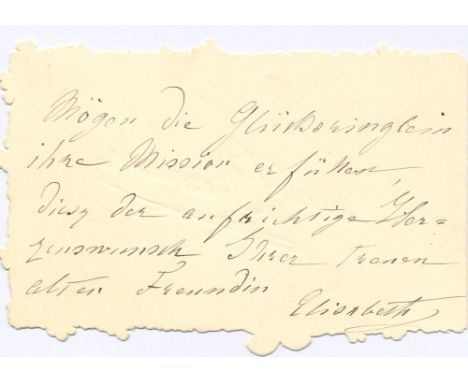 Mögen die Glücksringlein
ihre Mission erfüllen,
dies der aufrichtige Her=
zenswunsch Ihrer treuen
alten Freundin
Elisabeth